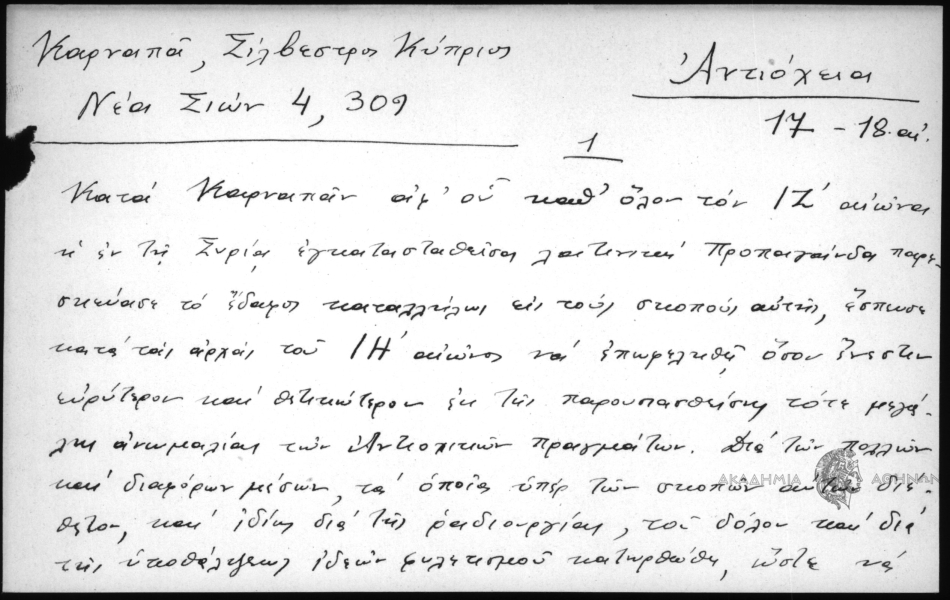 Καρναπᾶ, Σίλβεστρος Κύπριος
Ἀντιόχεια
Νέα Σιών 4, 309
17 - 18 αἰ.
1
Κατά Καρναπᾶν ἀφ' οὗ καθ' ὅλον τόν ΙΖ' αἰῶνα
ἡ ἐν τῇ Συρίᾳ ἐγκατασταθεῖσα λατινική Προπαγάνδα παρε-
σκεύασε τό ἔδαφος καταλλήλως εἰς τούς σκοπούς αὐτῆς, ἔσπευσε
κατά τάς ἀρχάς τοῦ ΙΗ' αἰῶνος νά ἐπωφεληθῇ ὅσον ἔνεστιν
εὐρύτερον καί θετικώτερον ἐκ τῆς παρουσιασθείσης τότε μεγά-
λης ἀνωμαλίας τῶν Ἀντιοχικῶν πραγμάτων. Διά τῶν πολλῶν
καί διαφόρων μέσων, τά ὁποῖα ὑπέρ τῶν σκοπῶν αὐτῆς διέ-
θετον, καί ἰδίως διά τῆς ῥᾳδιουργίας, τοῦ δόλου καί διά
τῆς ὑποθάλψεως ἰδεῶν φυλετισμοῦ κατωρθώθη, ὥστε νά
ΑΚΑΔΗΜΙΑ ΑΘΗΝΩΝ